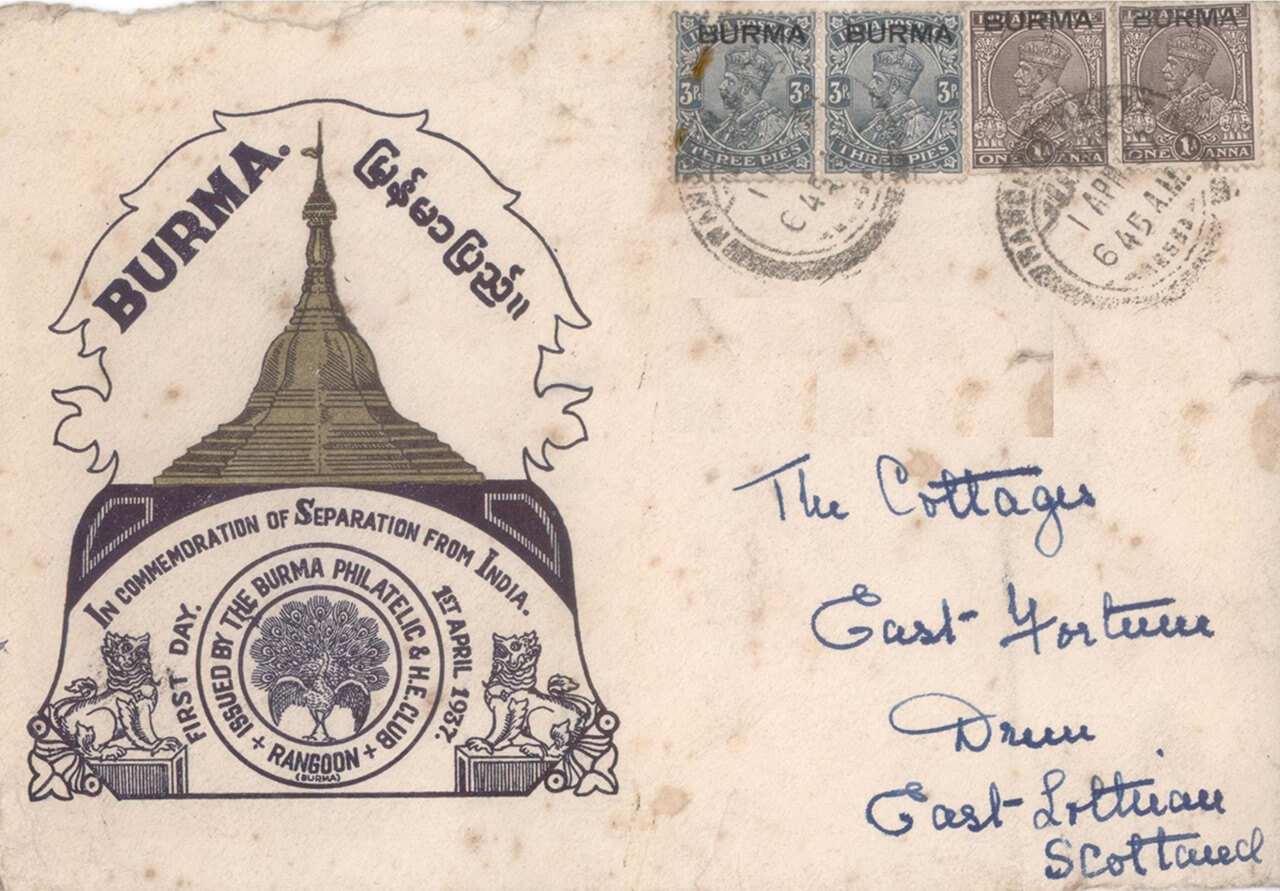 BURMA.
မြန်မာပြည်။
IN COMMEMORATION OF SEPARATION FROM INDIA.
FIRST DAY.
1ST APRIL 1937.
ISSUED BY THE BURMA PHILATELIC & H.E. CLUB
+ RANGOON +
(BURMA)
BURMA
3 Ps
3 Ps
THREE PIES
BURMA
3 Ps
3 Ps
THREE PIES
BURMA
ONE 1A ANNA
BURMA
ONE 1A ANNA
1 APR
6 45 A.M.
The Cottages
East Fortune
Drem
East Lothian
Scotland